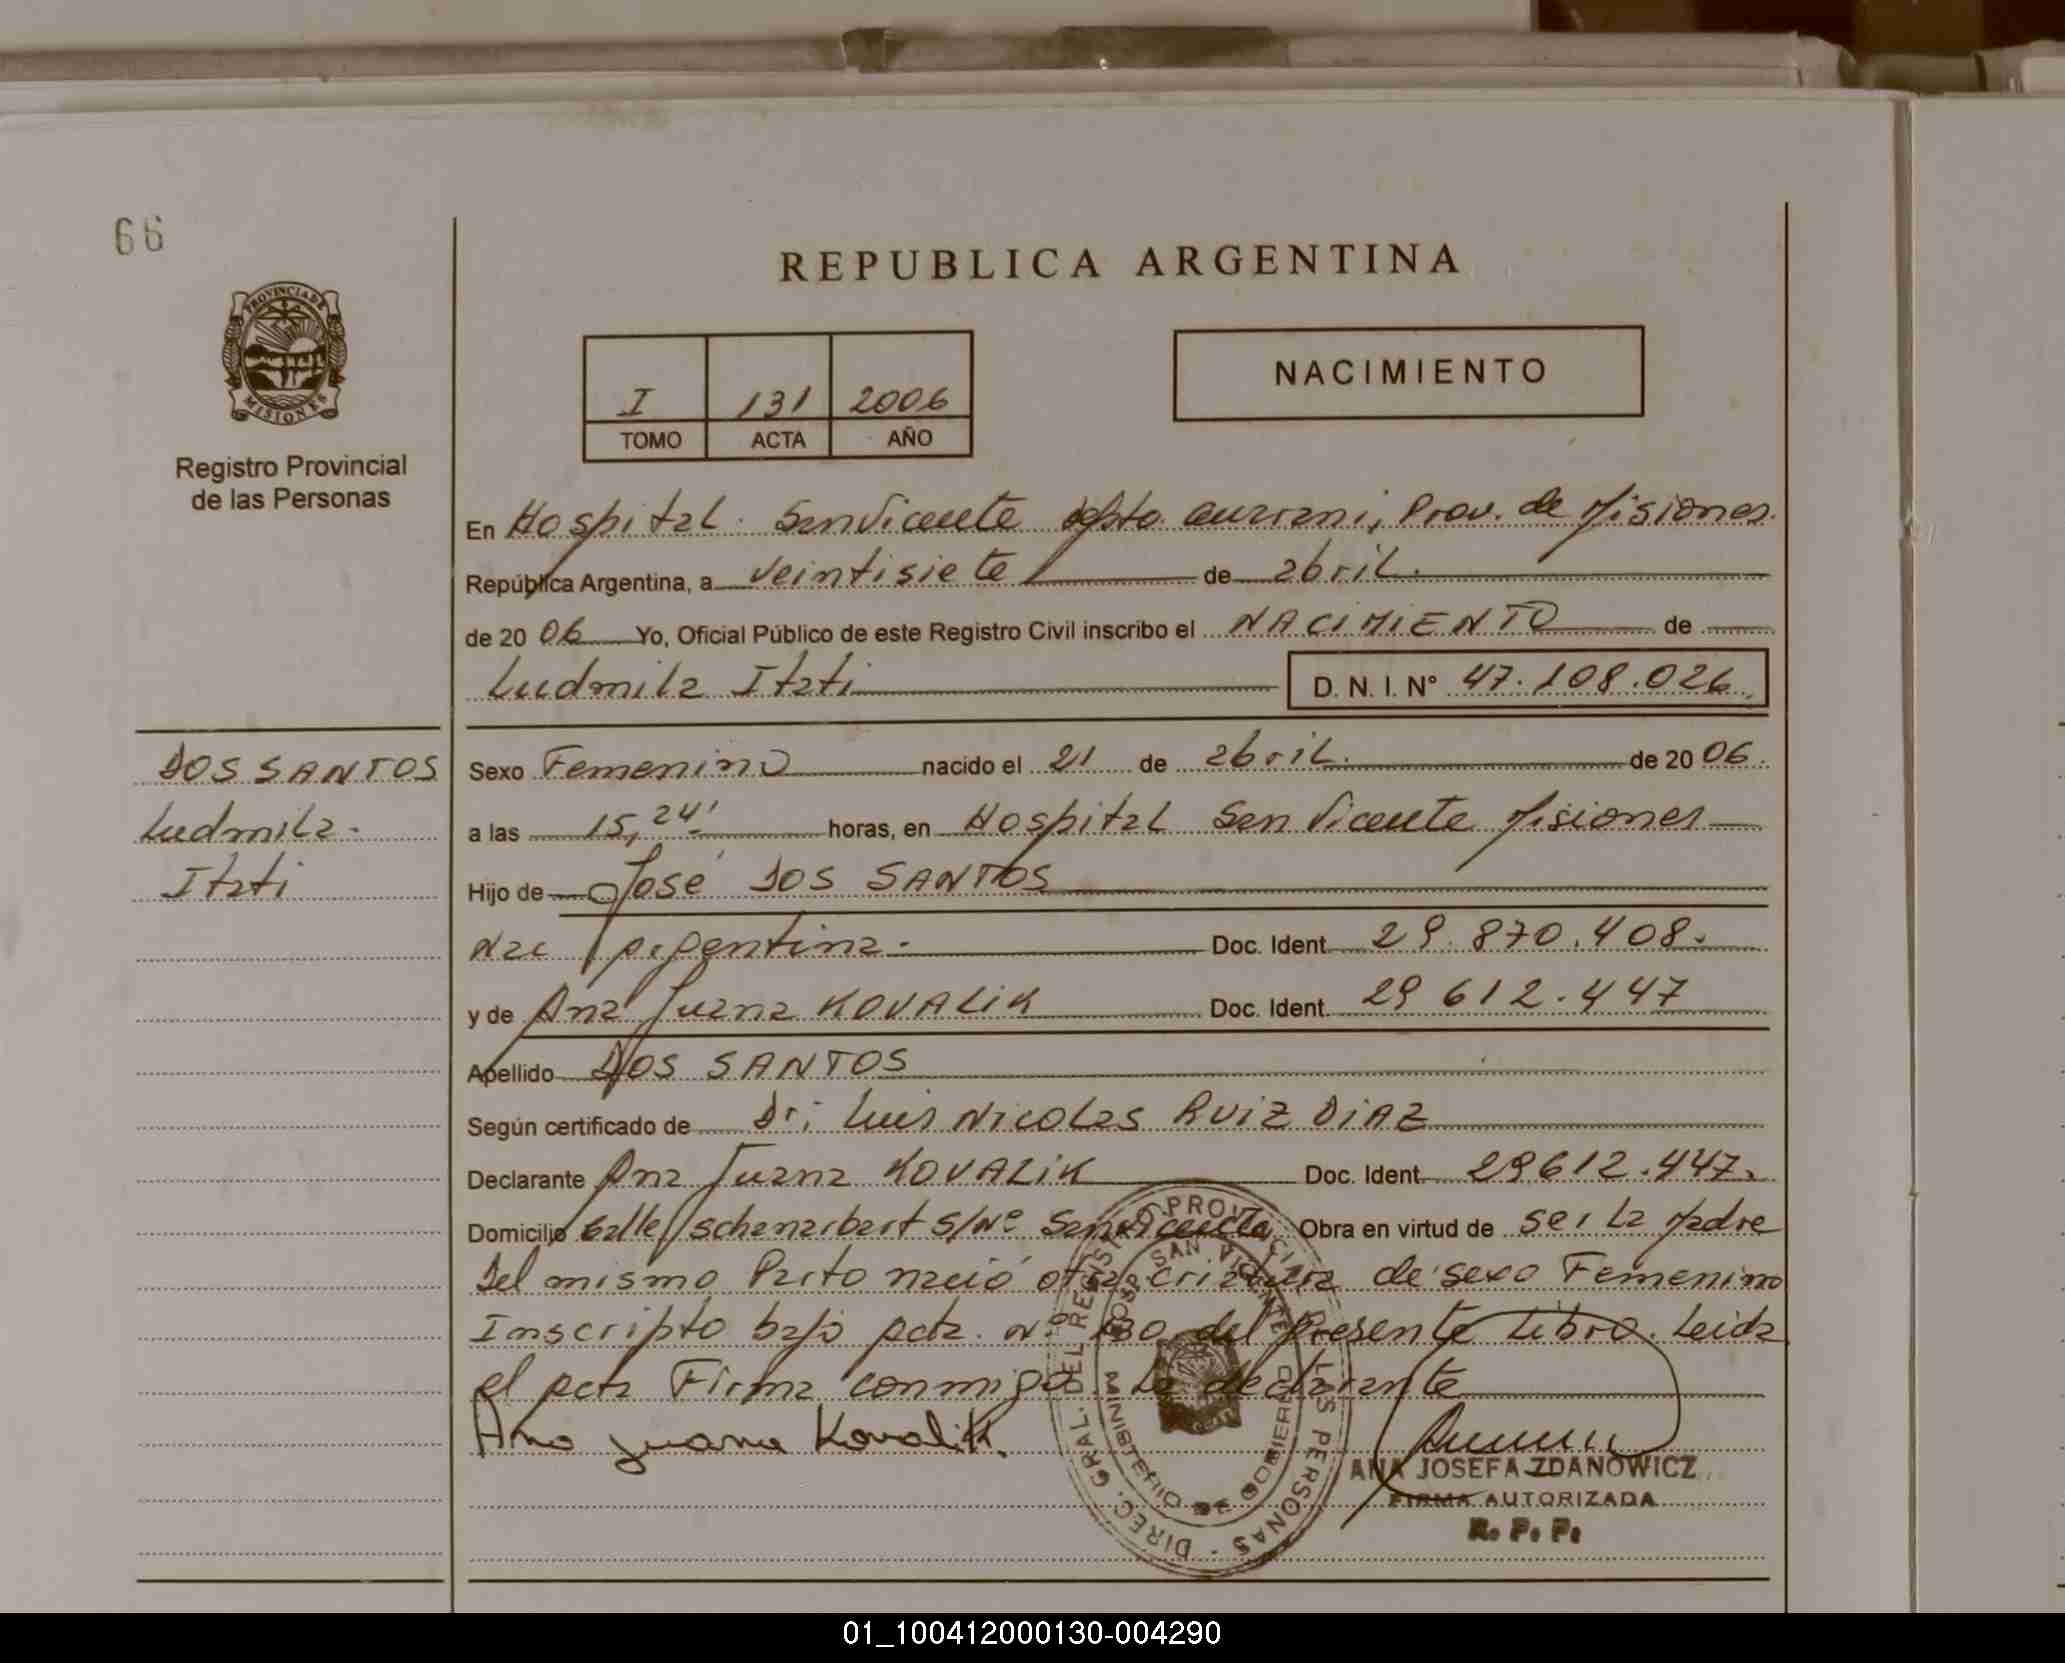 66
REPUBLICA ARGENTINA
PROVINCIA DE
MISIONES
Registro Provincial
de las Personas
I 131 2006
TOMO ACTA AÑO
NACIMIENTO
En Hospital San Vicente dpto. Guarani, Prov. de Misiones.
República Argentina, a veintisiete de abril.
de 2006 Yo, Oficial Público de este Registro Civil inscribo el NACIMIENTO de
Ludmila Itati D. N. I. N° 47.108.026
DOS SANTOS
Ludmila.
Itati
Sexo Femenino nacido el 21 de abril. de 2006.
a las 15,24' horas, en Hospital San Vicente Misiones
Hijo de José DOS SANTOS
Nac Argentina. Doc. Ident. 29.870.408.
y de Ana Juana KOVALIK Doc. Ident. 29 612.447
Apellido DOS SANTOS
Según certificado de Dr; Luis Nicolas RUIZ DIAZ
Declarante Ana Juana KOVALIK Doc. Ident. 29612.447.
Domicilio Calle S/Nº San Vicente Obra en virtud de ser la Madre
Del mismo Parto nació otra criatura de sexo Femenino
Inscripto bajo acta. Nº 130 del presente Libro. Leida
el acta Firma conmigo. La declarante
Ana Juana Kovalik.
DIREC. GRAL. DEL REGISTRO PROVINCIAL DE LAS PERSONAS
HOSP. SAN VICENTE
MINISTERIO DE GOBIERNO
ANA JOSEFA ZDANOWICZ
FIRMA AUTORIZADA
R. P. P.
01_100412000130-004290